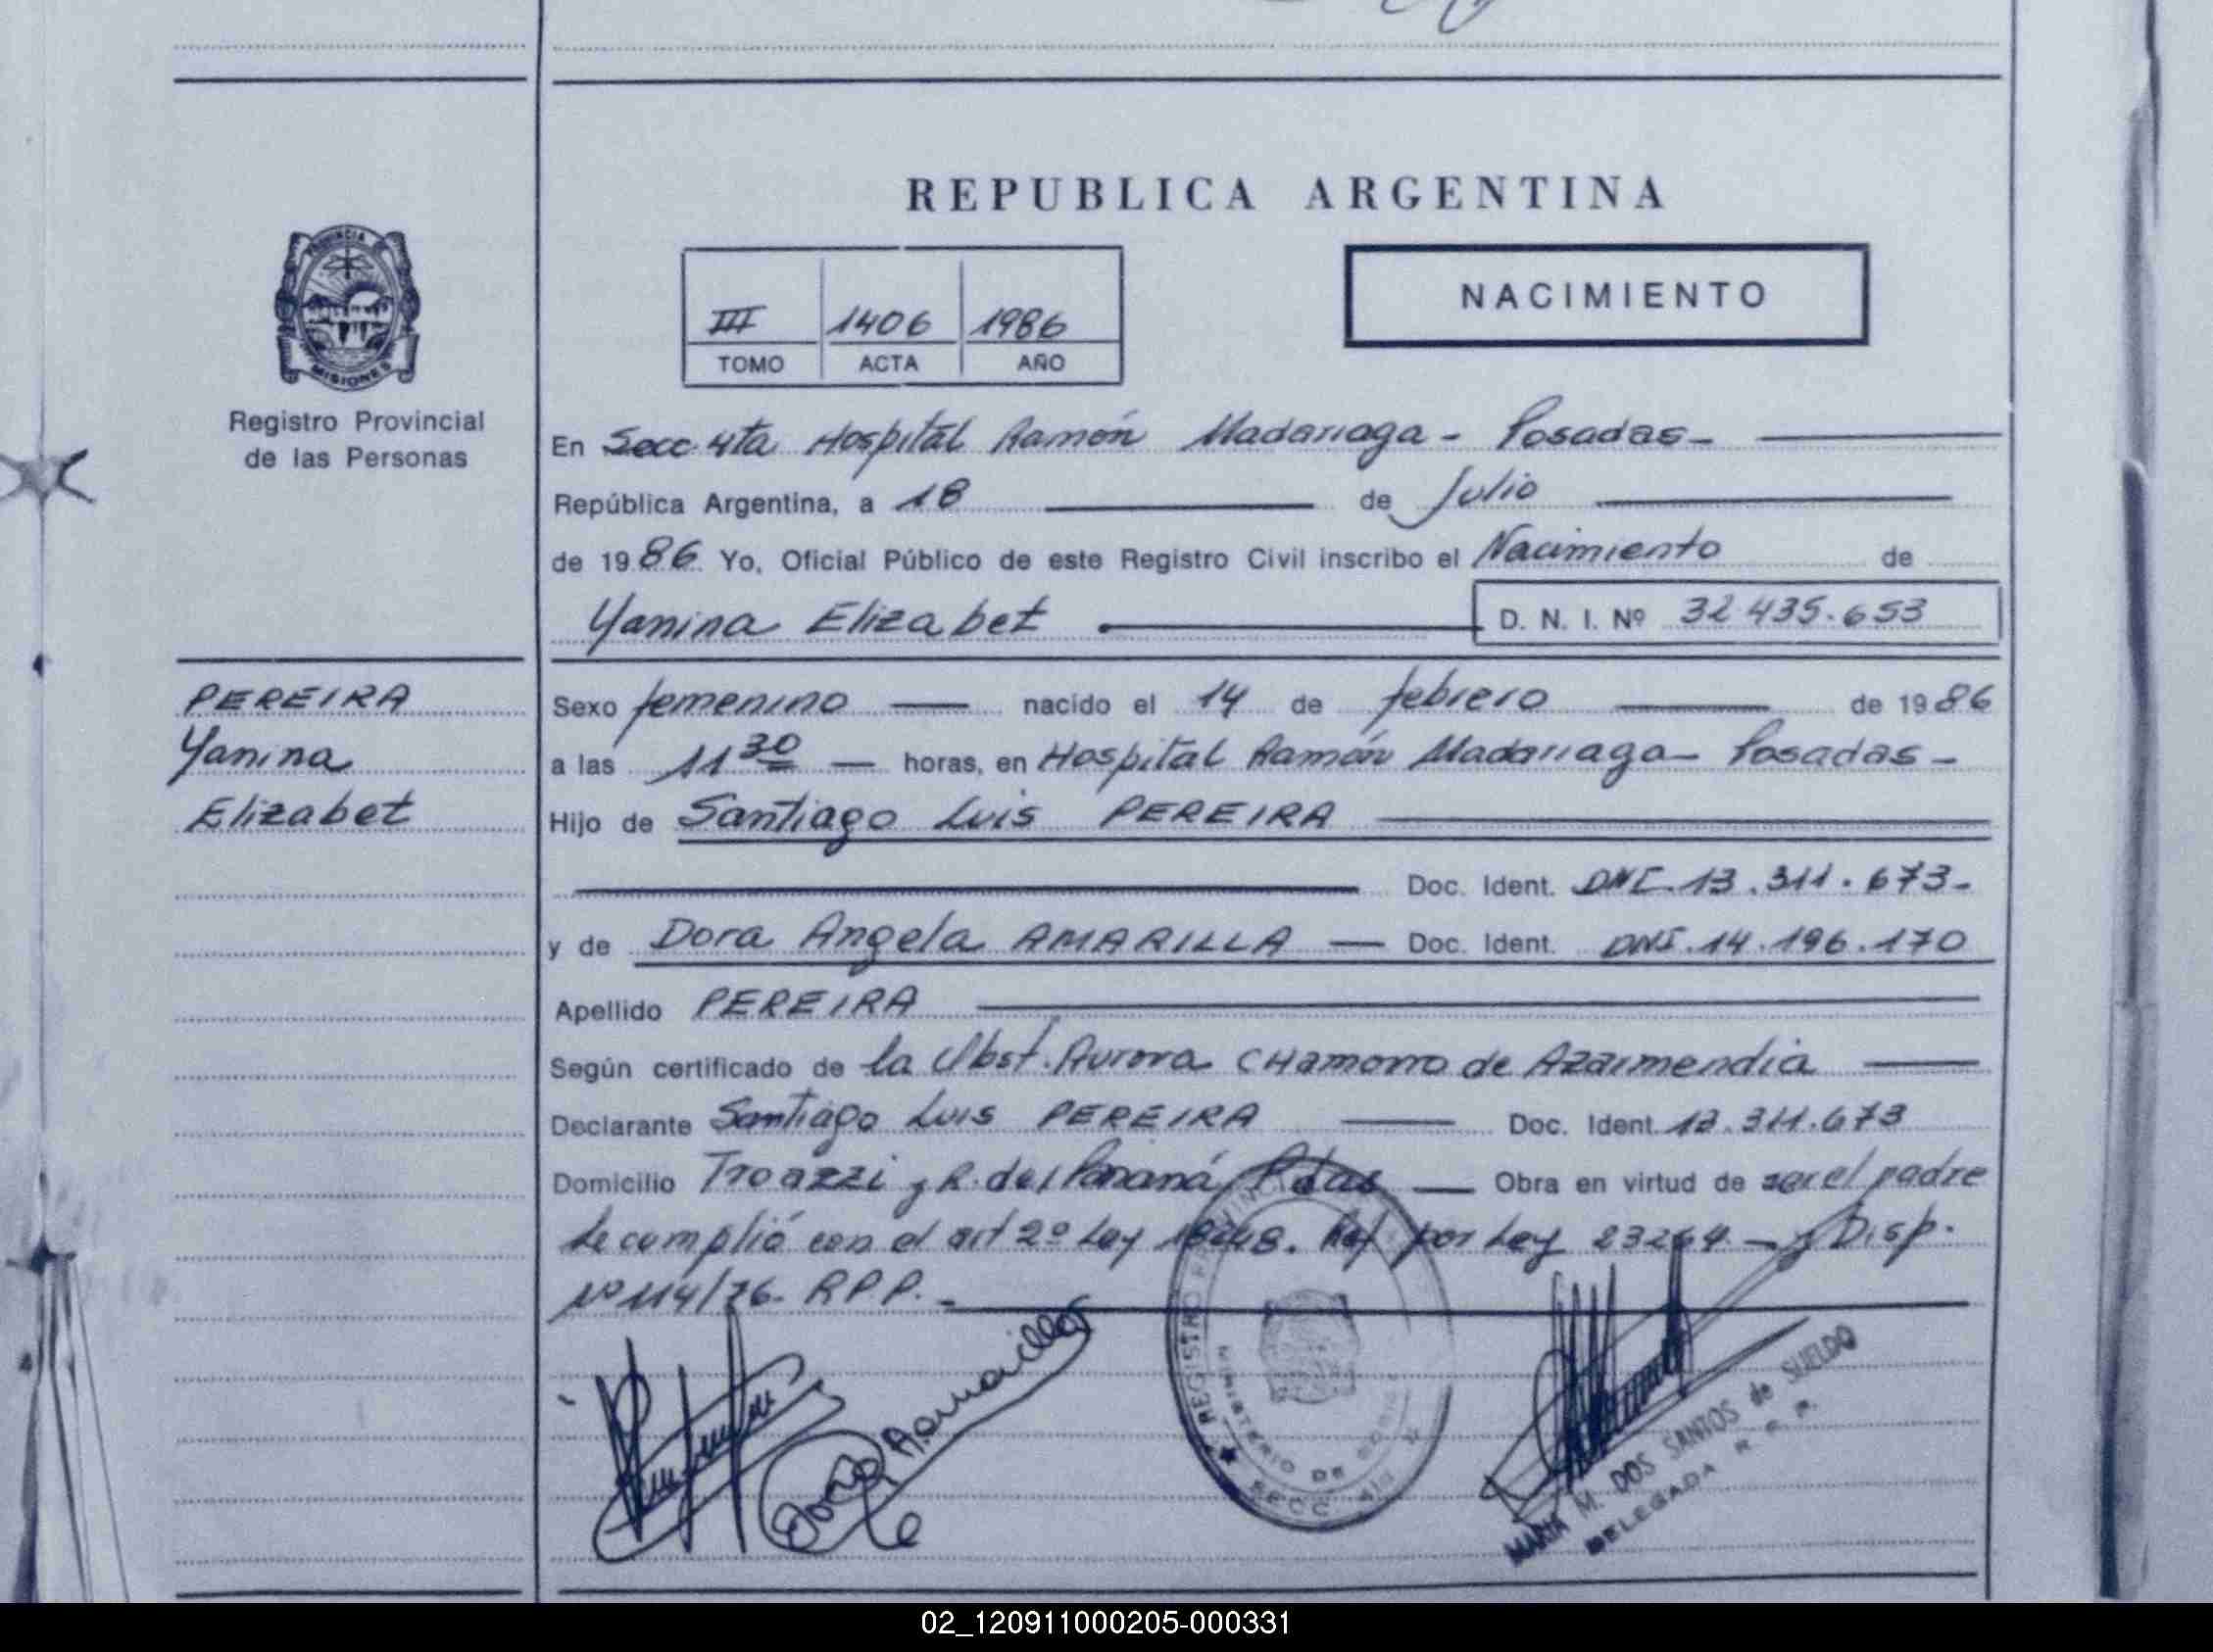 REPUBLICA ARGENTINA
PROVINCIA
MISIONES
Registro Provincial
de las Personas
III 1406 1986
TOMO ACTA AÑO
NACIMIENTO
En Secc. 4ta Hospital Ramón Madariaga - Posadas -
República Argentina, a 18 de Julio
de 1986. Yo, Oficial Público de este Registro Civil inscribo el Nacimiento de
Yanina Elizabet D. N. I. Nº 32.435.653
PEREIRA
Yanina
Elizabet
Sexo femenino — nacido el 14 de febrero — de 1986
a las 11 30 — horas, en Hospital Ramón Madariaga - Posadas -
Hijo de Santiago Luis PEREIRA
Doc. Ident. DNI. 13.311.673 -
y de Dora Angela AMARILLA — Doc. Ident. DNI. 14.196.170
Apellido PEREIRA
Según certificado de la Obst. Aurora CHamorro de Azarmendia —
Declarante Santiago Luis PEREIRA — Doc. Ident. 13.311.673
Domicilio y R. del Paraná, Pdas — Obra en virtud de ser el padre
Se cumplió con el art 2º Ley 18248. Ref por Ley 23264. - y Disp.
Nº 114/76. R.P.P. -
Dora Amarilla
REGISTRO
MINISTERIO DE
SECC. 4ta
MARIA M. DOS SANTOS de SUELDO
DELEGADA R. P. P.
02_120911000205-000331